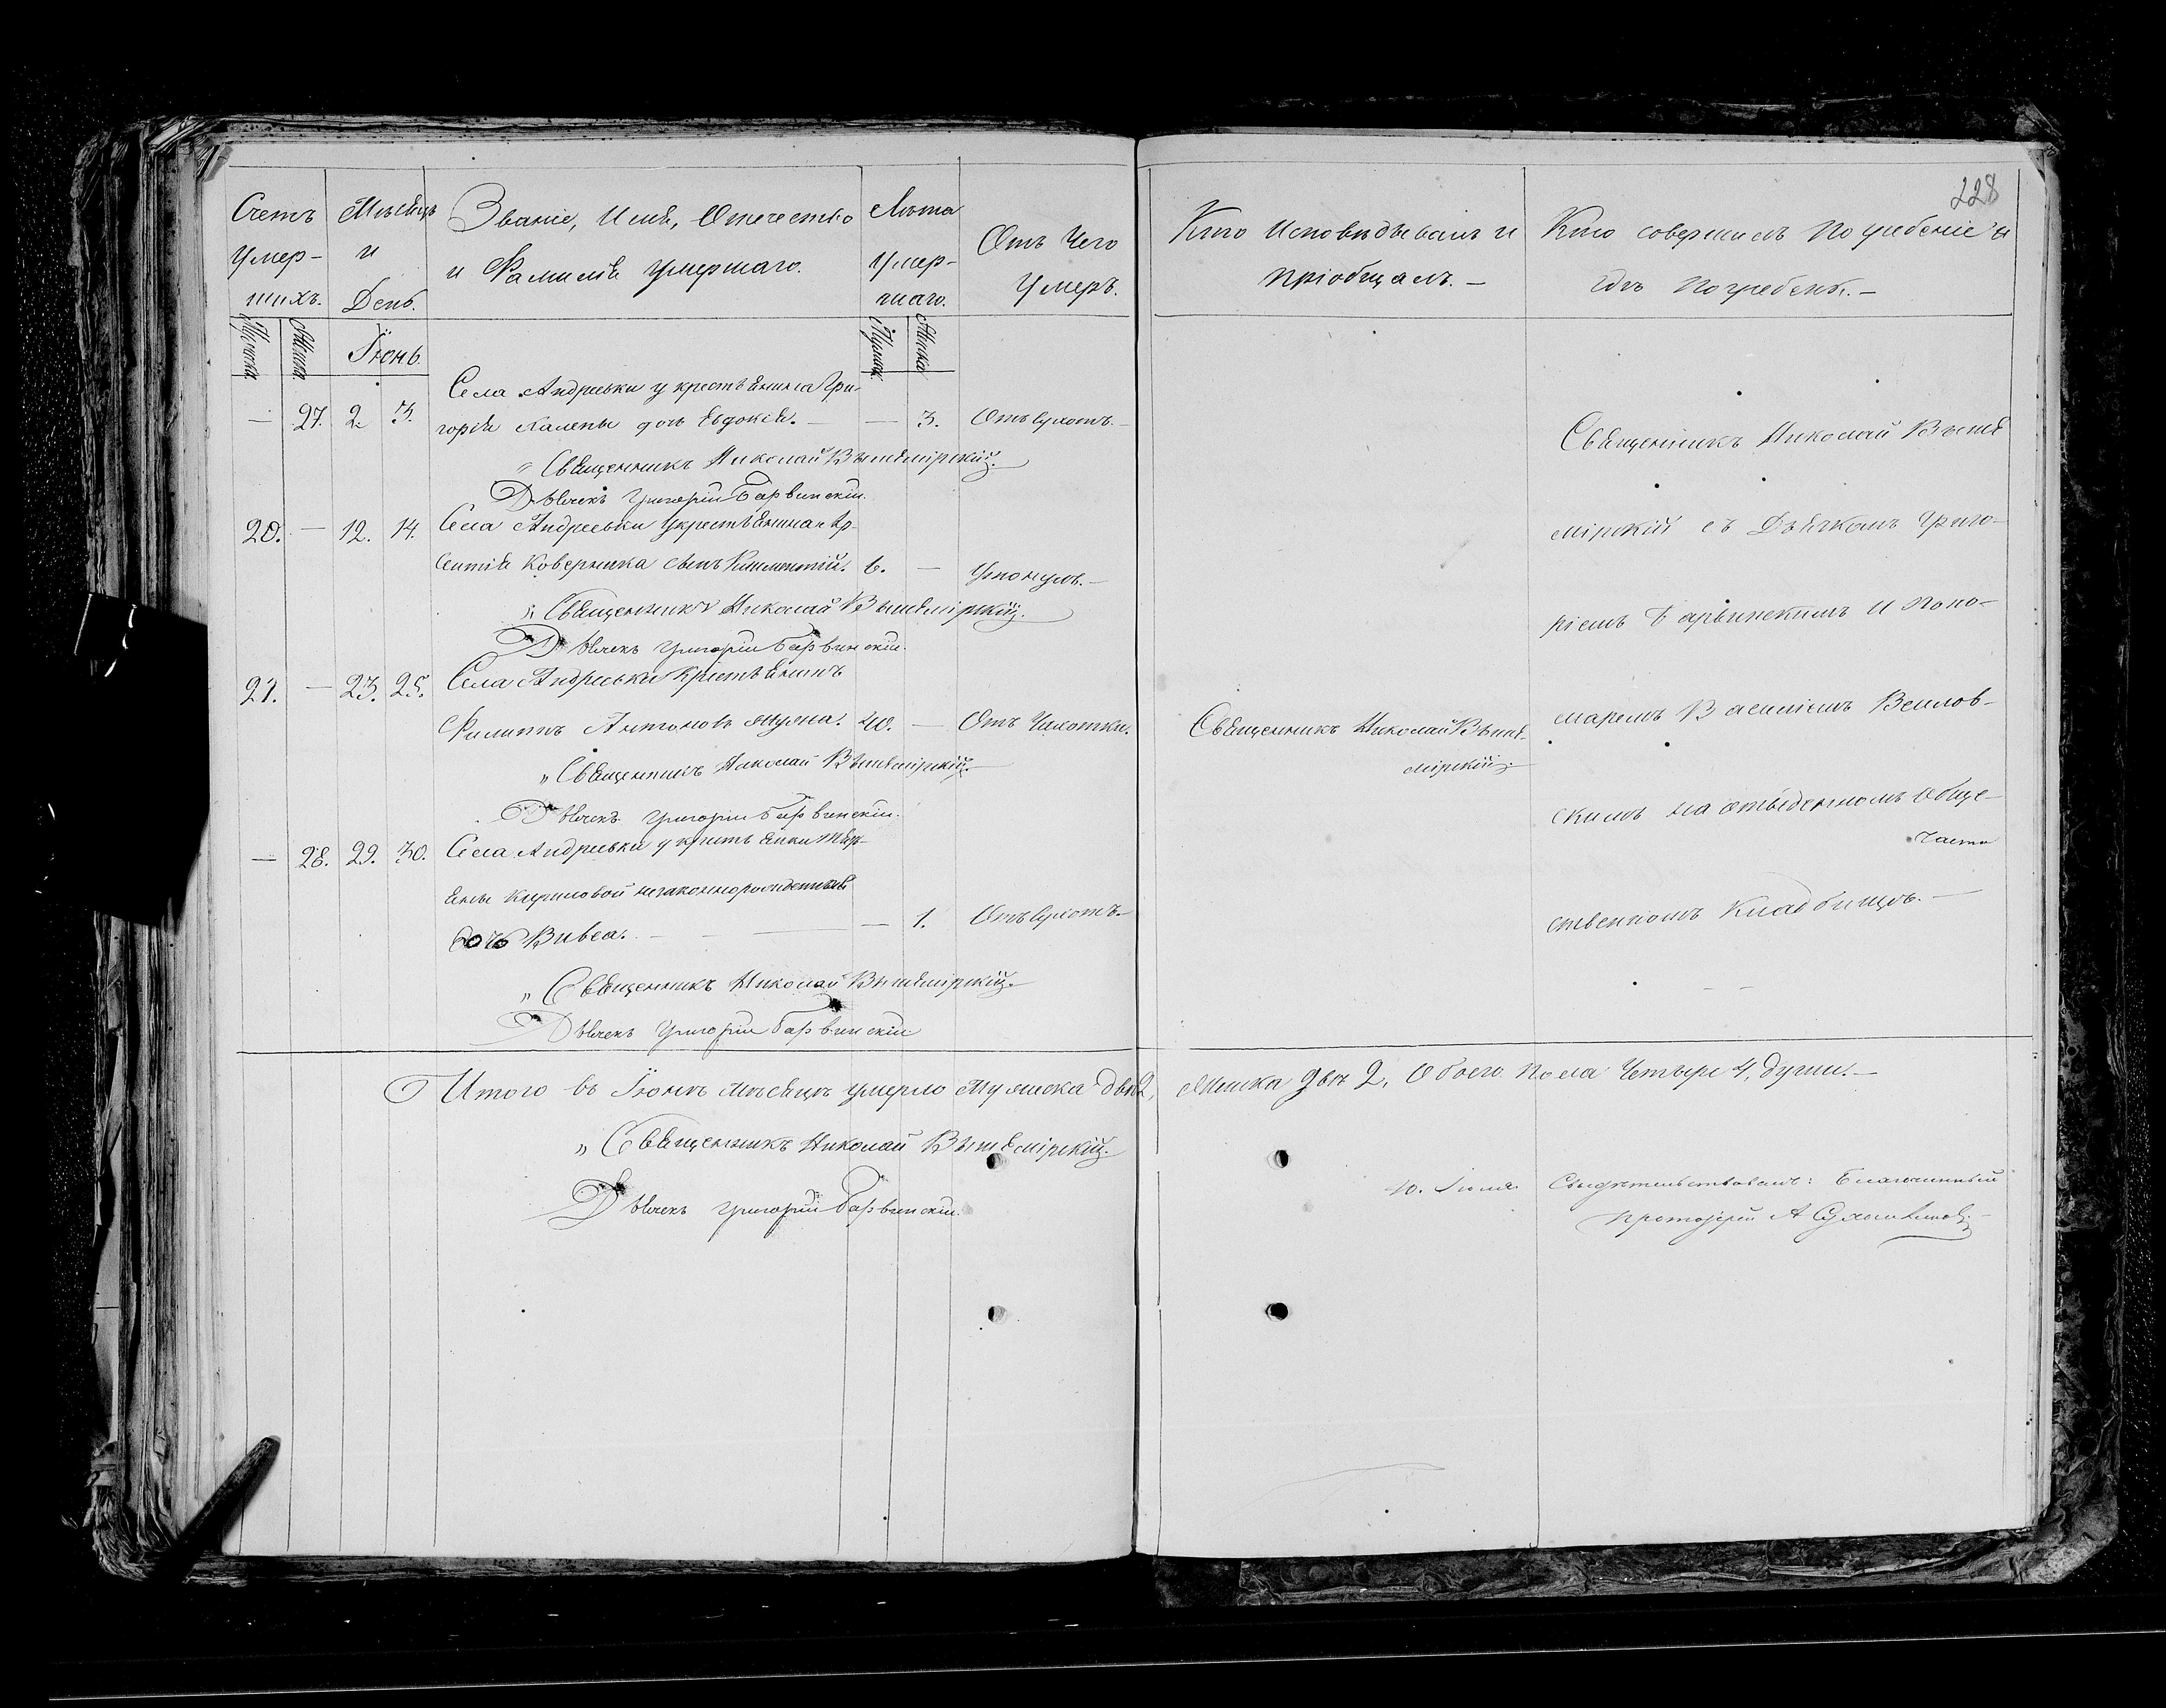 228
Счетъ умер-
шихъ.
Мѣсяцъ
и
День.
Званіе, Имя, Отечество
и Фамилія умершаго.
Лѣта
умер-
шаго.
Отъ Чего
Умеръ.
Кто Исповѣдывалъ и
пріобщалъ. —
Кто совершилъ Погребеніе и
гдѣ Погребенъ. —
Мужска.
Женска.
Іюнь
Мужск.
Женска
Села Андреевки у крестьянина Гри-
— 27. 2. 3. горія дочь Евдокія. — — 3. Отъ Сухотъ. —
„ Священникъ Николай Вышемірскій.
Дьячекъ Григорій Барвинскій.
20. — 12. 14. Села Андреевки у крестьянина Ар-
сентія Коверника сынъ Климентій. 6. — Утонулъ. —
„ Священникъ Николай Вышемірскій.
Дьячекъ Григорій Барвинскій.
21. — 23. 25. Села Андреевки Крестьянинъ
Филиппъ Антоновъ 40. — Отъ Чахотки.
„ Священникъ Николай Вышемірскій.
Дьячекъ Григорій Барвинскій.
— 28. 29. 30. Села Андреевки у крестьянки
Кириловой незаконнорожденная
дочь — 1. Отъ Сухотъ. —
„ Священникъ Николай Вышемірскій.
Дьячекъ Григорій Барвинскій
Священникъ Николай Выше-
мірскій.
Священникъ Николай Выше
мірскій съ Дьячкомъ Григо-
ріемъ Барвинскимъ и поно-
маремъ Василіемъ
скимъ на отведенномъ обще-
ственномъ Кладбищѣ. —
Итого въ Іюнѣ мѣсяцѣ умерло Мужска два 2, Женска двѣ 2, Обоего пола Четыре 4, души. —
„ Священникъ Николай Вышемірскій.
Дьячекъ Григорій Барвинскій.
10. Іюля Свидѣтельствовалъ: Благочинный
протоіерей А